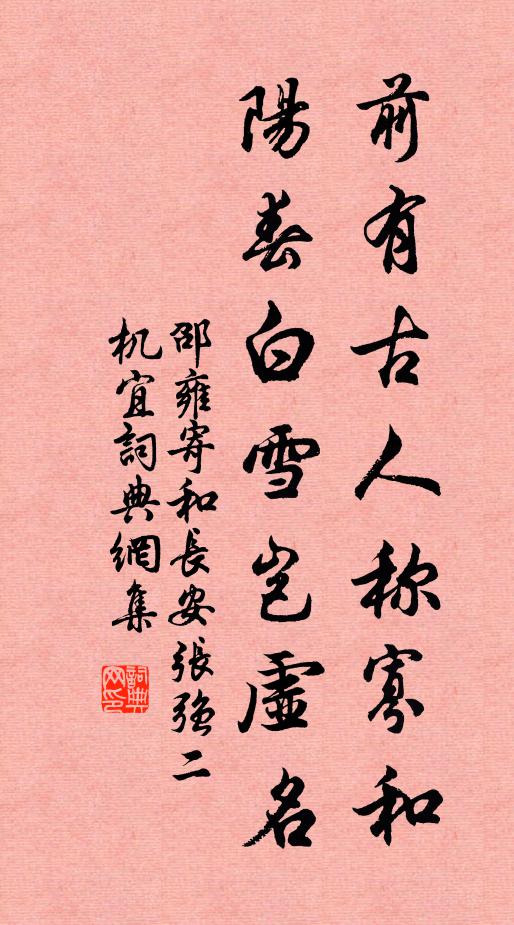 前有古人称寡和
陽春白雪豈虛名
邵雍寄和長安張强二
机宜詞典網集
詞典網印